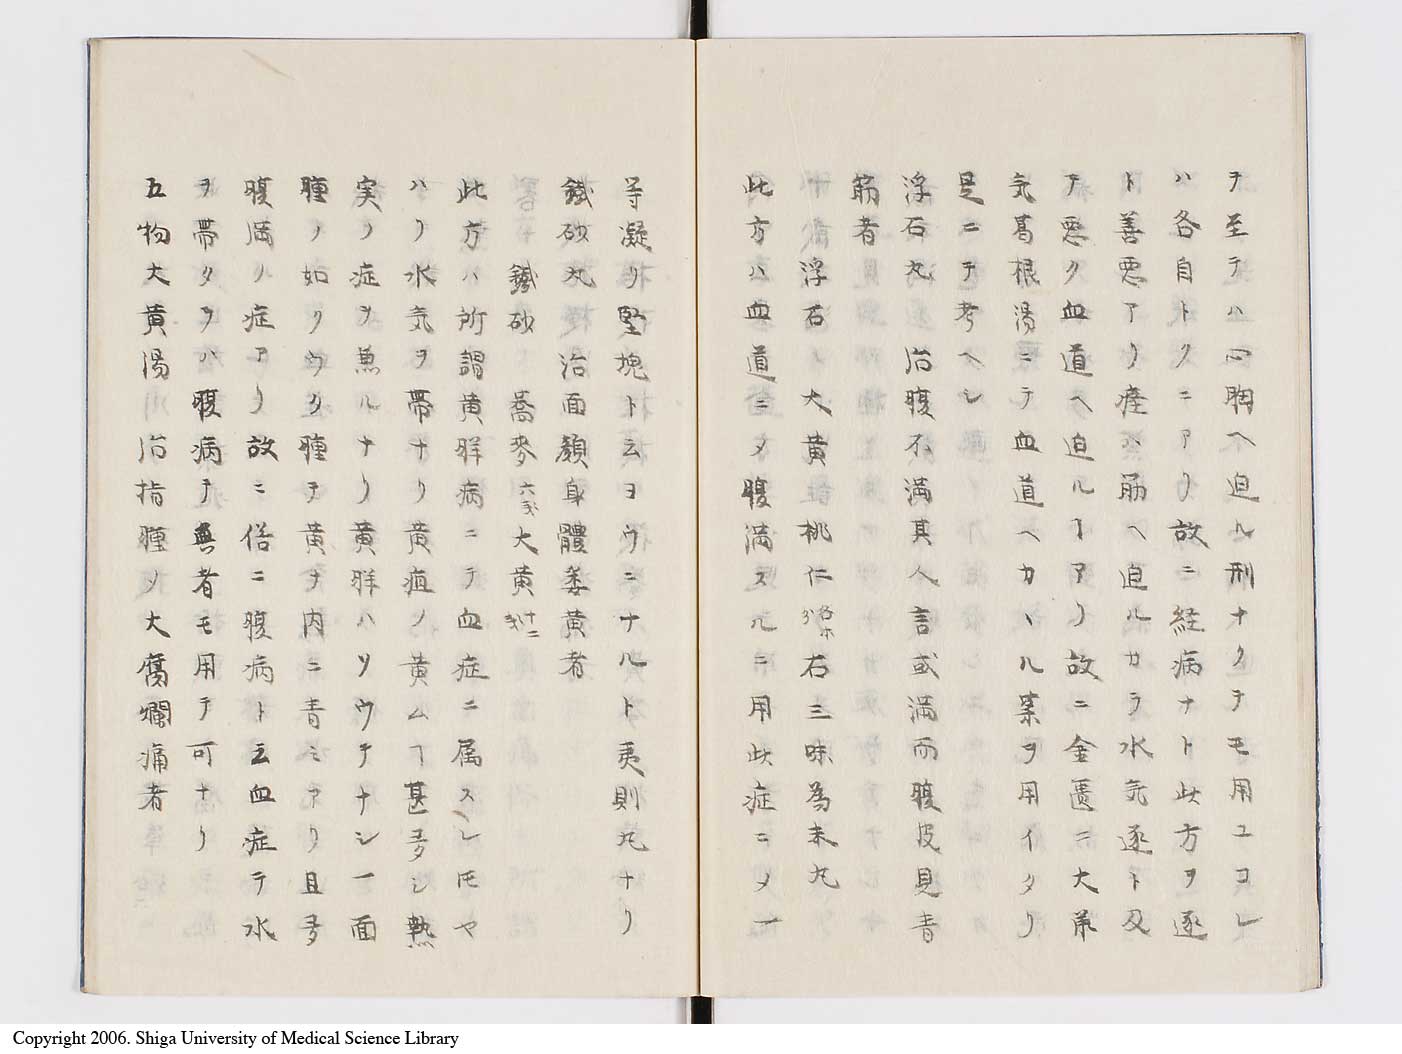 テ至テハ心胸ヘ迫ル刑ナクテモ用ユコレ
ハ各自トクニアリ故ニ経病ナト此方ヲ逐
ト善悪アリ痙ハ筋ヘ迫ルカラ水気逐ト及
テ悪ク血道ヘ迫ルヿアリ故ニ金匱ニ大弟
気葛根湯ニテ血道ヘカヽル薬ヲ用イタリ
是ニテ考ヘシ
浮石丸 治腹不満其人言或満而腹皮見青
筋者
浮石 大黄 桃仁各等分 右三味為末丸
此方ハ血道ニメ腹満スルニ用此症ニメ一
等凝リ堅塊ト云ヨウニナルト夷則丸ナリ
鐵砂丸 治面顔身體萎黄者
鐵砂 蕎麥六戔 大黄十二戔
此方ハ所謂黄胖病ニテ血症ニ属スレ𪜈ヤ
ハリ水気ヲ帯ナリ黄疸ノ黄ムヿ甚多シ熱
実ノ症ヲ兼ルナリ黄胖ハソウテナシ一面
腫ノ如クウク腫テ黄ヲ内ニ青ミアリ且多
腹満ノ症アリ故ニ俗ニ腹病ト云血症テ水
ヲ帯タヲハ腹病テ無者モ用テ可ナリ
五物大黄湯 治指腫ノ大腐爛痛者
Copyright 2006. Shiga University of Medical Science Library